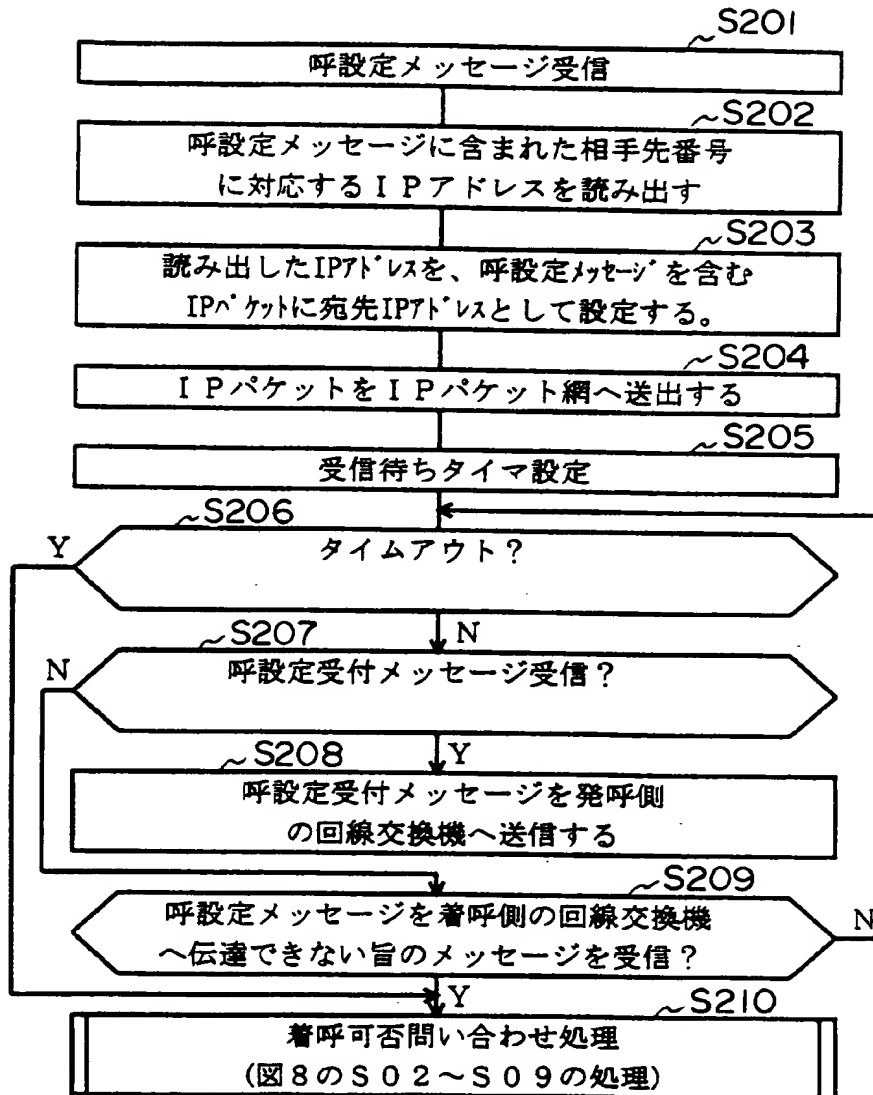 S201
呼設定メッセージ受信
S202
呼設定メッセージに含まれた相手先番号
に対応するIPアドレスを読み出す
S203
読み出したIPｱﾄﾞﾚｽを、呼設定ﾒｯｾｰｼﾞを含む
IPﾊﾟｹｯﾄに宛先IPｱﾄﾞﾚｽとして設定する。
S204
IPパケットをIPパケット網へ送出する
S205
受信待ちタイマ設定
S206
Y
タイムアウト？
N
S207
N
呼設定受付メッセージ受信？
Y
S208
呼設定受付メッセージを発呼側
の回線交換機へ送信する
S209
呼設定メッセージを着呼側の回線交換機
N
へ伝達できない旨のメッセージを受信？
Y
S210
着呼可否問い合わせ処理
(図8のS02～S09の処理)